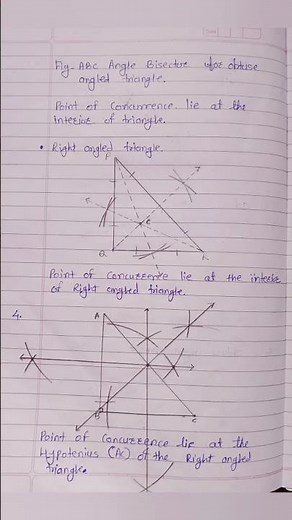 Fig- ABC Angle Bisector for obtuse
angled triangle.
Point of Concurrence lie at the
interior of triangle.
• Right angled triangle.
P
e
Q
R
Point of Concurrence lie at the interior
of Right angled triangle.
4.
A
B
C
Point of Concurrence lie at the
Hypotenius (AC) of the Right angled
triangle.